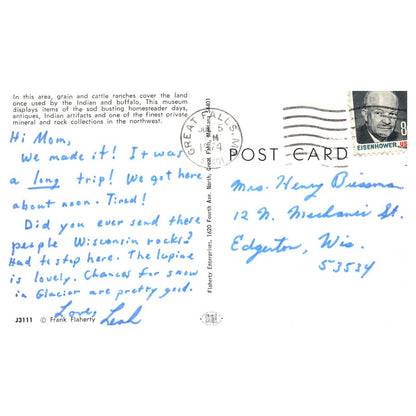 In this area, grain and cattle ranches cover the land
once used by the Indian and buffalo. This museum
displays items of the sod busting homesteader days,
antiques, Indian artifacts and one of the finest private
mineral and rock collections in the northwest.
Hi Mom,
We made it! It was
a long trip! We got here
about noon. Tired!
Did you ever send those
people Wisconsin rocks?
Had to stop here. The lupine
is lovely. Chances for snow
in Glacier are pretty good.
Love,
Leah
J3111 © Frank Flaherty
Flaherty Enterprises, 1620 Fourth Ave. North, Great Falls, Montana 59401
GREAT FALLS, M
JUL 5
1974
POST CARD
EISENHOWER
8
US
Mrs. Henry Biessman
12 N. Mechanic St.
Edgerton, Wis.
53534